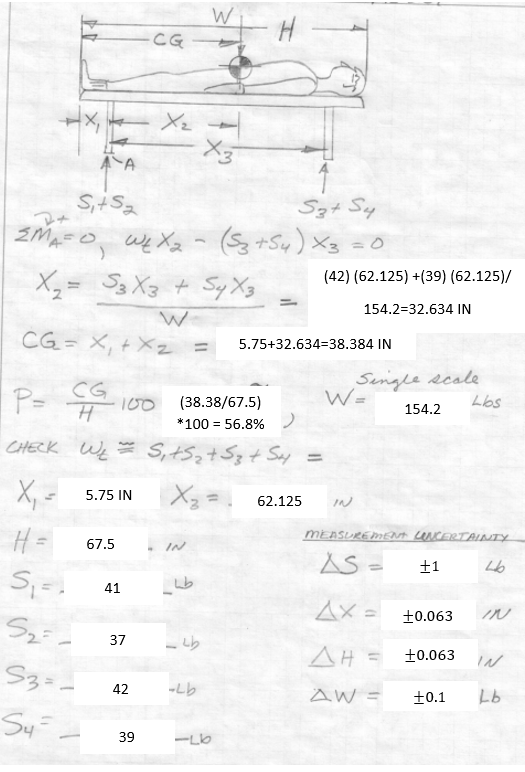 W
H
CG
X₁ X₂
X₃
A
S₁+S₂ S₃+S₄
ΣM_A=0, W_t X₂ - (S₃+S₄) X₃ = 0
X₂ = S₃X₃ + S₄X₃ / W = (42) (62.125) +(39) (62.125)/
154.2=32.634 IN
CG = X₁ + X₂ = 5.75+32.634=38.384 IN
P= CG/H 100 (38.38/67.5)
*100 = 56.8% ) ,
Single scale
W= 154.2 Lbs
CHECK W_t ≅ S₁+S₂+S₃+S₄ =
X₁ = 5.75 IN X₃ = 62.125 IN
H = 67.5 IN
S₁ = 41 Lb
S₂ = 37 Lb
S₃ = 42 Lb
S₄ = 39 Lb
MEASUREMENT UNCERTAINTY
ΔS = ±1 Lb
ΔX = ±0.063 IN
ΔH = ±0.063 IN
ΔW = ±0.1 Lb